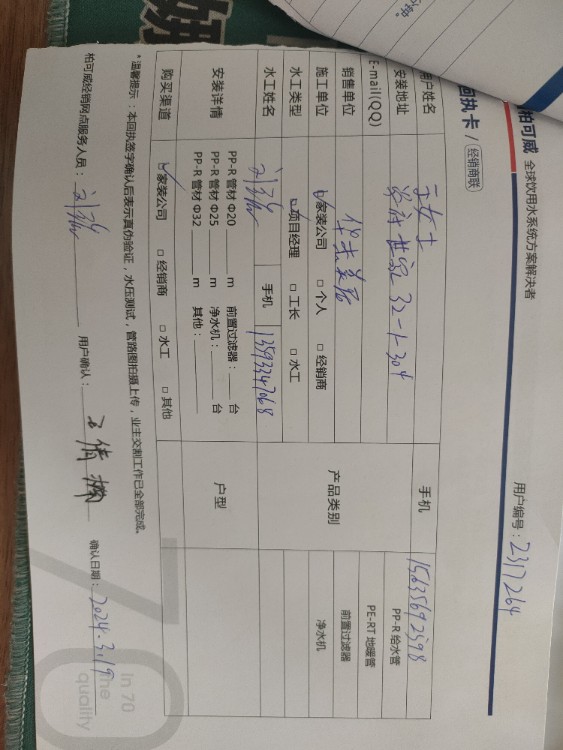 柏可威 全球饮用水系统方案解决者
回执卡 / 经销商联
用户编号：2317264
用户姓名 王女士 手机 15635692598
安装地址 32-1-304
E-mail(QQ)
销售单位
施工单位 家装公司 □ 个人 □ 经销商
水工类型 项目经理 □ 工长 □ 水工
水工姓名 手机 13593347068
产品类别
PP-R 给水管
PE-RT 地暖管
前置过滤器
净水机
安装详情 PP-R 管材 Φ20 m 前置过滤器： 台
PP-R 管材 Φ25 m 净水机： 台
PP-R 管材 Φ32 m 其他：
户型
购买渠道 家装公司 □ 经销商 □ 水工 □ 其他
*温馨提示：本回执签字确认后表示真伪验证，水压测试，管路图拍摄上传，业主交割工作已全部完成。
柏可威经销网点服务人员： 用户确认： 确认日期：2024.3.19
In 70
quality